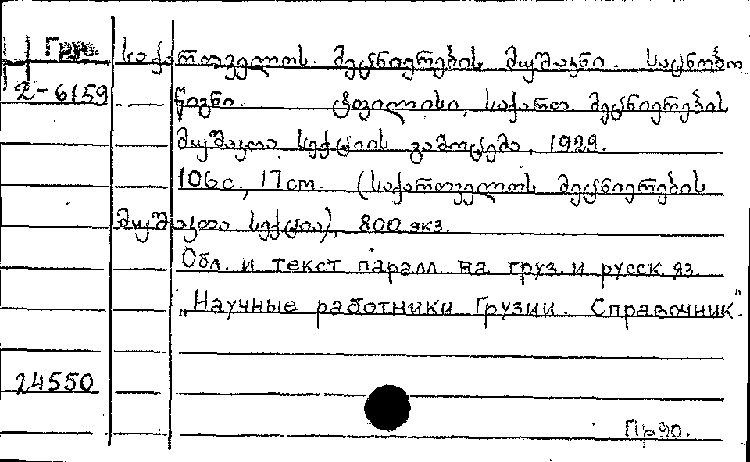 Груз. საქართველოს მეცნიერების მუშაკნი. საცნობო
2-6159 წიგნი. ტფილისი, საქართ. მეცნიერების
მუშაკთა სექციის გამოცემა, 1929.
106с, 17cm. (საქართველოს მეცნიერების
მუშაკთა სექცია), 800 экз.
Обл. и текст паралл на груз и русск яз
"Научные работники Грузии. Справочник."
24550